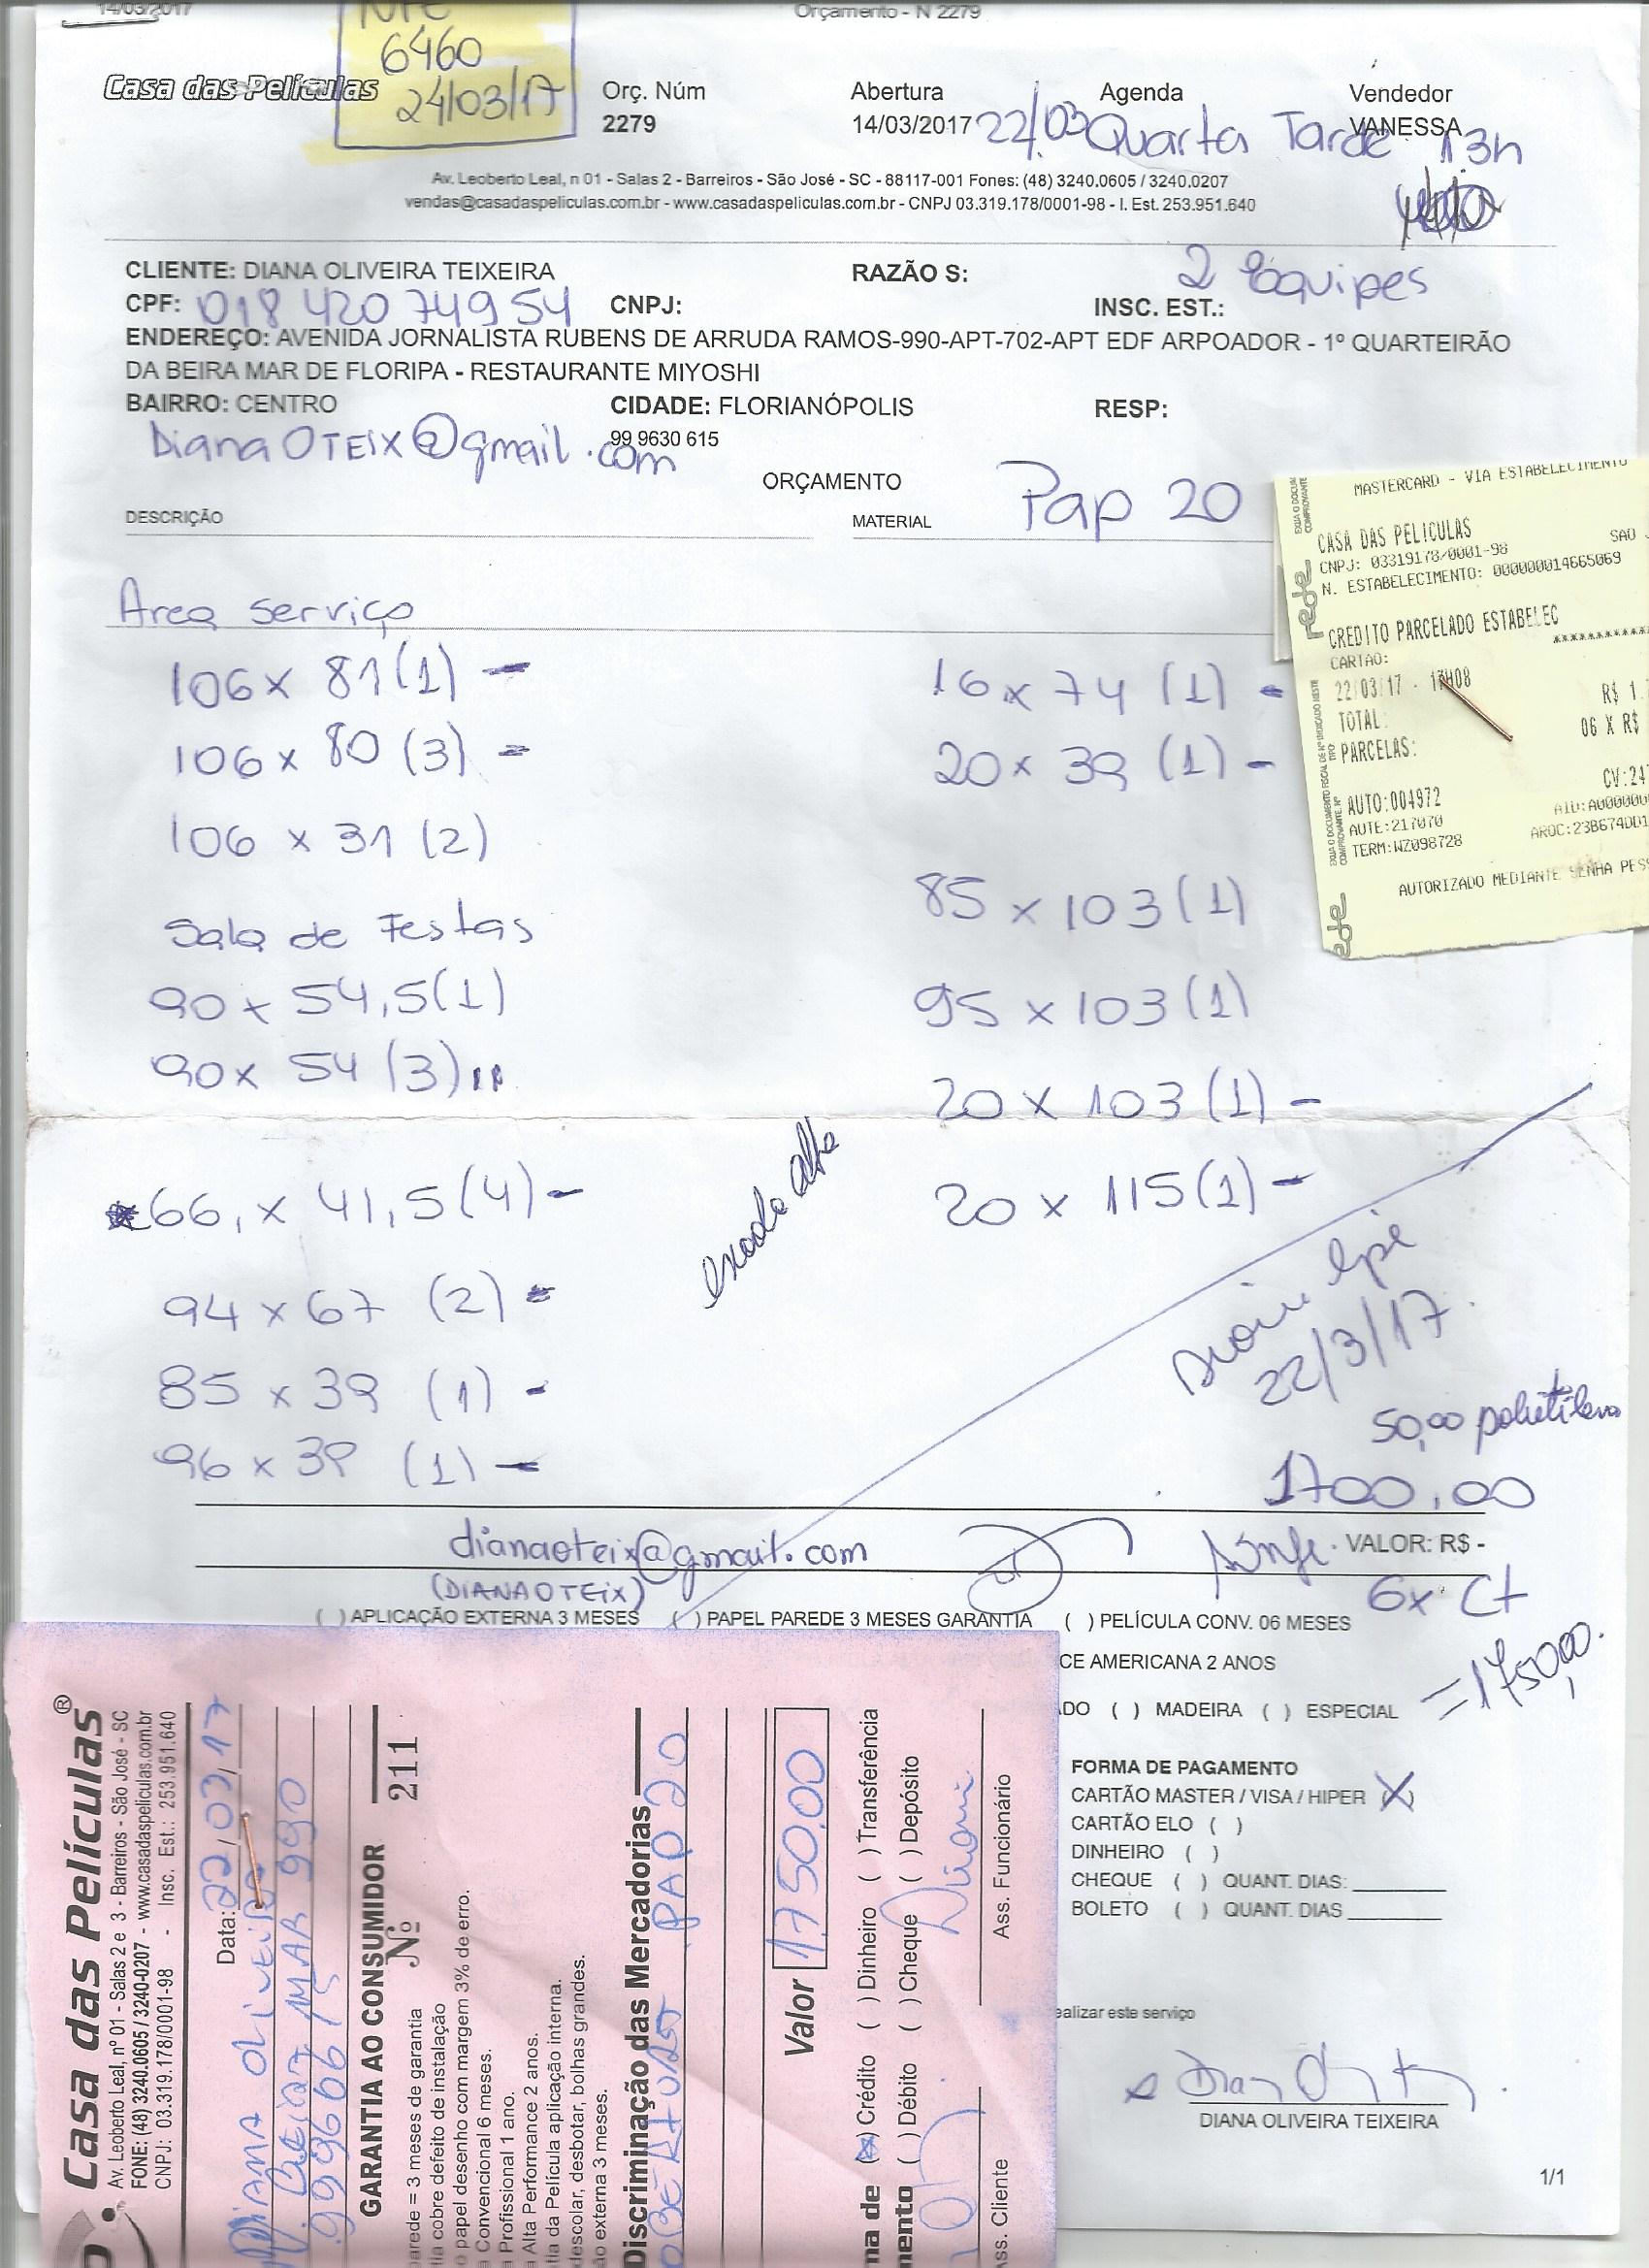 14/03/2017
Orçamento - N 2279
NFE
6460
24/03/17
Casa das Películas
Orç. Núm
2279
Abertura
14/03/2017
22/03 Quarta Tarde 13h
Agenda
Vendedor
VANESSA
Av. Leoberto Leal, n 01 - Salas 2 - Barreiros - São José - SC - 88117-001 Fones: (48) 3240.0605 / 3240.0207
vendas@casadaspeliculas.com.br - www.casadaspeliculas.com.br - CNPJ 03.319.178/0001-98 - I. Est. 253.951.640
2 Equipes
CLIENTE: DIANA OLIVEIRA TEIXEIRA
RAZÃO S:
CPF: 018 420 749 54
CNPJ:
INSC. EST.:
ENDEREÇO: AVENIDA JORNALISTA RUBENS DE ARRUDA RAMOS-990-APT-702-APT EDF ARPOADOR - 1º QUARTEIRÃO
DA BEIRA MAR DE FLORIPA - RESTAURANTE MIYOSHI
BAIRRO: CENTRO
CIDADE: FLORIANÓPOLIS
RESP:
99 9630 615
DianaOTEIX@gmail.com
ORÇAMENTO
DESCRIÇÃO
MATERIAL
Pap 20
Area serviço
106 x 81 (1) -
106 x 80 (3) -
106 x 31 (2)
Sala de Festas
90 x 54,5 (1)
90 x 54 (3)
66, x 41,5 (4) -
94 x 67 (2) -
85 x 39 (1) -
96 x 39 (1) -
16 x 74 (1) -
20 x 39 (1) -
85 x 103 (1)
95 x 103 (1)
20 x 103 (1) -
20 x 115 (1) -
escada alta
22/3/17
50,00 polietileno
1700,00
dianaoteix@gmail.com
(DIANAOTEIX)
VALOR: R$ -
6x Ct
= 1750,00.
( ) APLICAÇÃO EXTERNA 3 MESES ( ) PAPEL PAREDE 3 MESES GARANTIA ( ) PELÍCULA CONV. 06 MESES
CE AMERICANA 2 ANOS
DO ( ) MADEIRA ( ) ESPECIAL
FORMA DE PAGAMENTO
CARTÃO MASTER / VISA / HIPER (X)
CARTÃO ELO ( )
DINHEIRO ( )
CHEQUE ( ) QUANT. DIAS:
BOLETO ( ) QUANT. DIAS
ealizar este serviço
DIANA OLIVEIRA TEIXEIRA
1/1
MASTERCARD - VIA ESTABELECIMENTO
CASA DAS PELICULAS
CNPJ: 03319178/0001-98 SAO
N. ESTABELECIMENTO: 000000014665069
CREDITO PARCELADO ESTABELEC
CARTAO: ***********
22/03/17 - 17H08
TOTAL: R$ 1.
PARCELAS: 06 X R$
CV:24
AUTO:004972
AID:A000000
AUTE:217070
AROC:23B674DD1
TERM:WZ098728
AUTORIZADO MEDIANTE SENHA PES
rede
Casa das Películas®
Av. Leoberto Leal, nº 01 - Salas 2 e 3 - Barreiros - São José - SC
FONE: (48) 3240.0605 / 3240-0207 - www.casadaspeliculas.com.br
CNPJ: 03.319.178/0001-98 - Insc. Est.: 253.951.640
Data: 22/03/17
DIANA OLIVEIRA
BEIRA MAR 990
99966615
GARANTIA AO CONSUMIDOR
Nº 211
arede = 3 meses de garantia
tia cobre defeito de instalação
o papel desenho com margem 3% de erro.
a Convencional 6 meses.
a Profissional 1 ano.
a Alta Performance 2 anos.
tia da Película aplicação interna.
descolar, desbotar, bolhas grandes.
ão externa 3 meses.
Discriminação das Mercadorias
PAP 20
Valor 1750,00
ma de (X) Crédito ( ) Dinheiro ( ) Transferência
mento ( ) Débito ( ) Cheque ( ) Depósito
Ass. Cliente
Ass. Funcionário